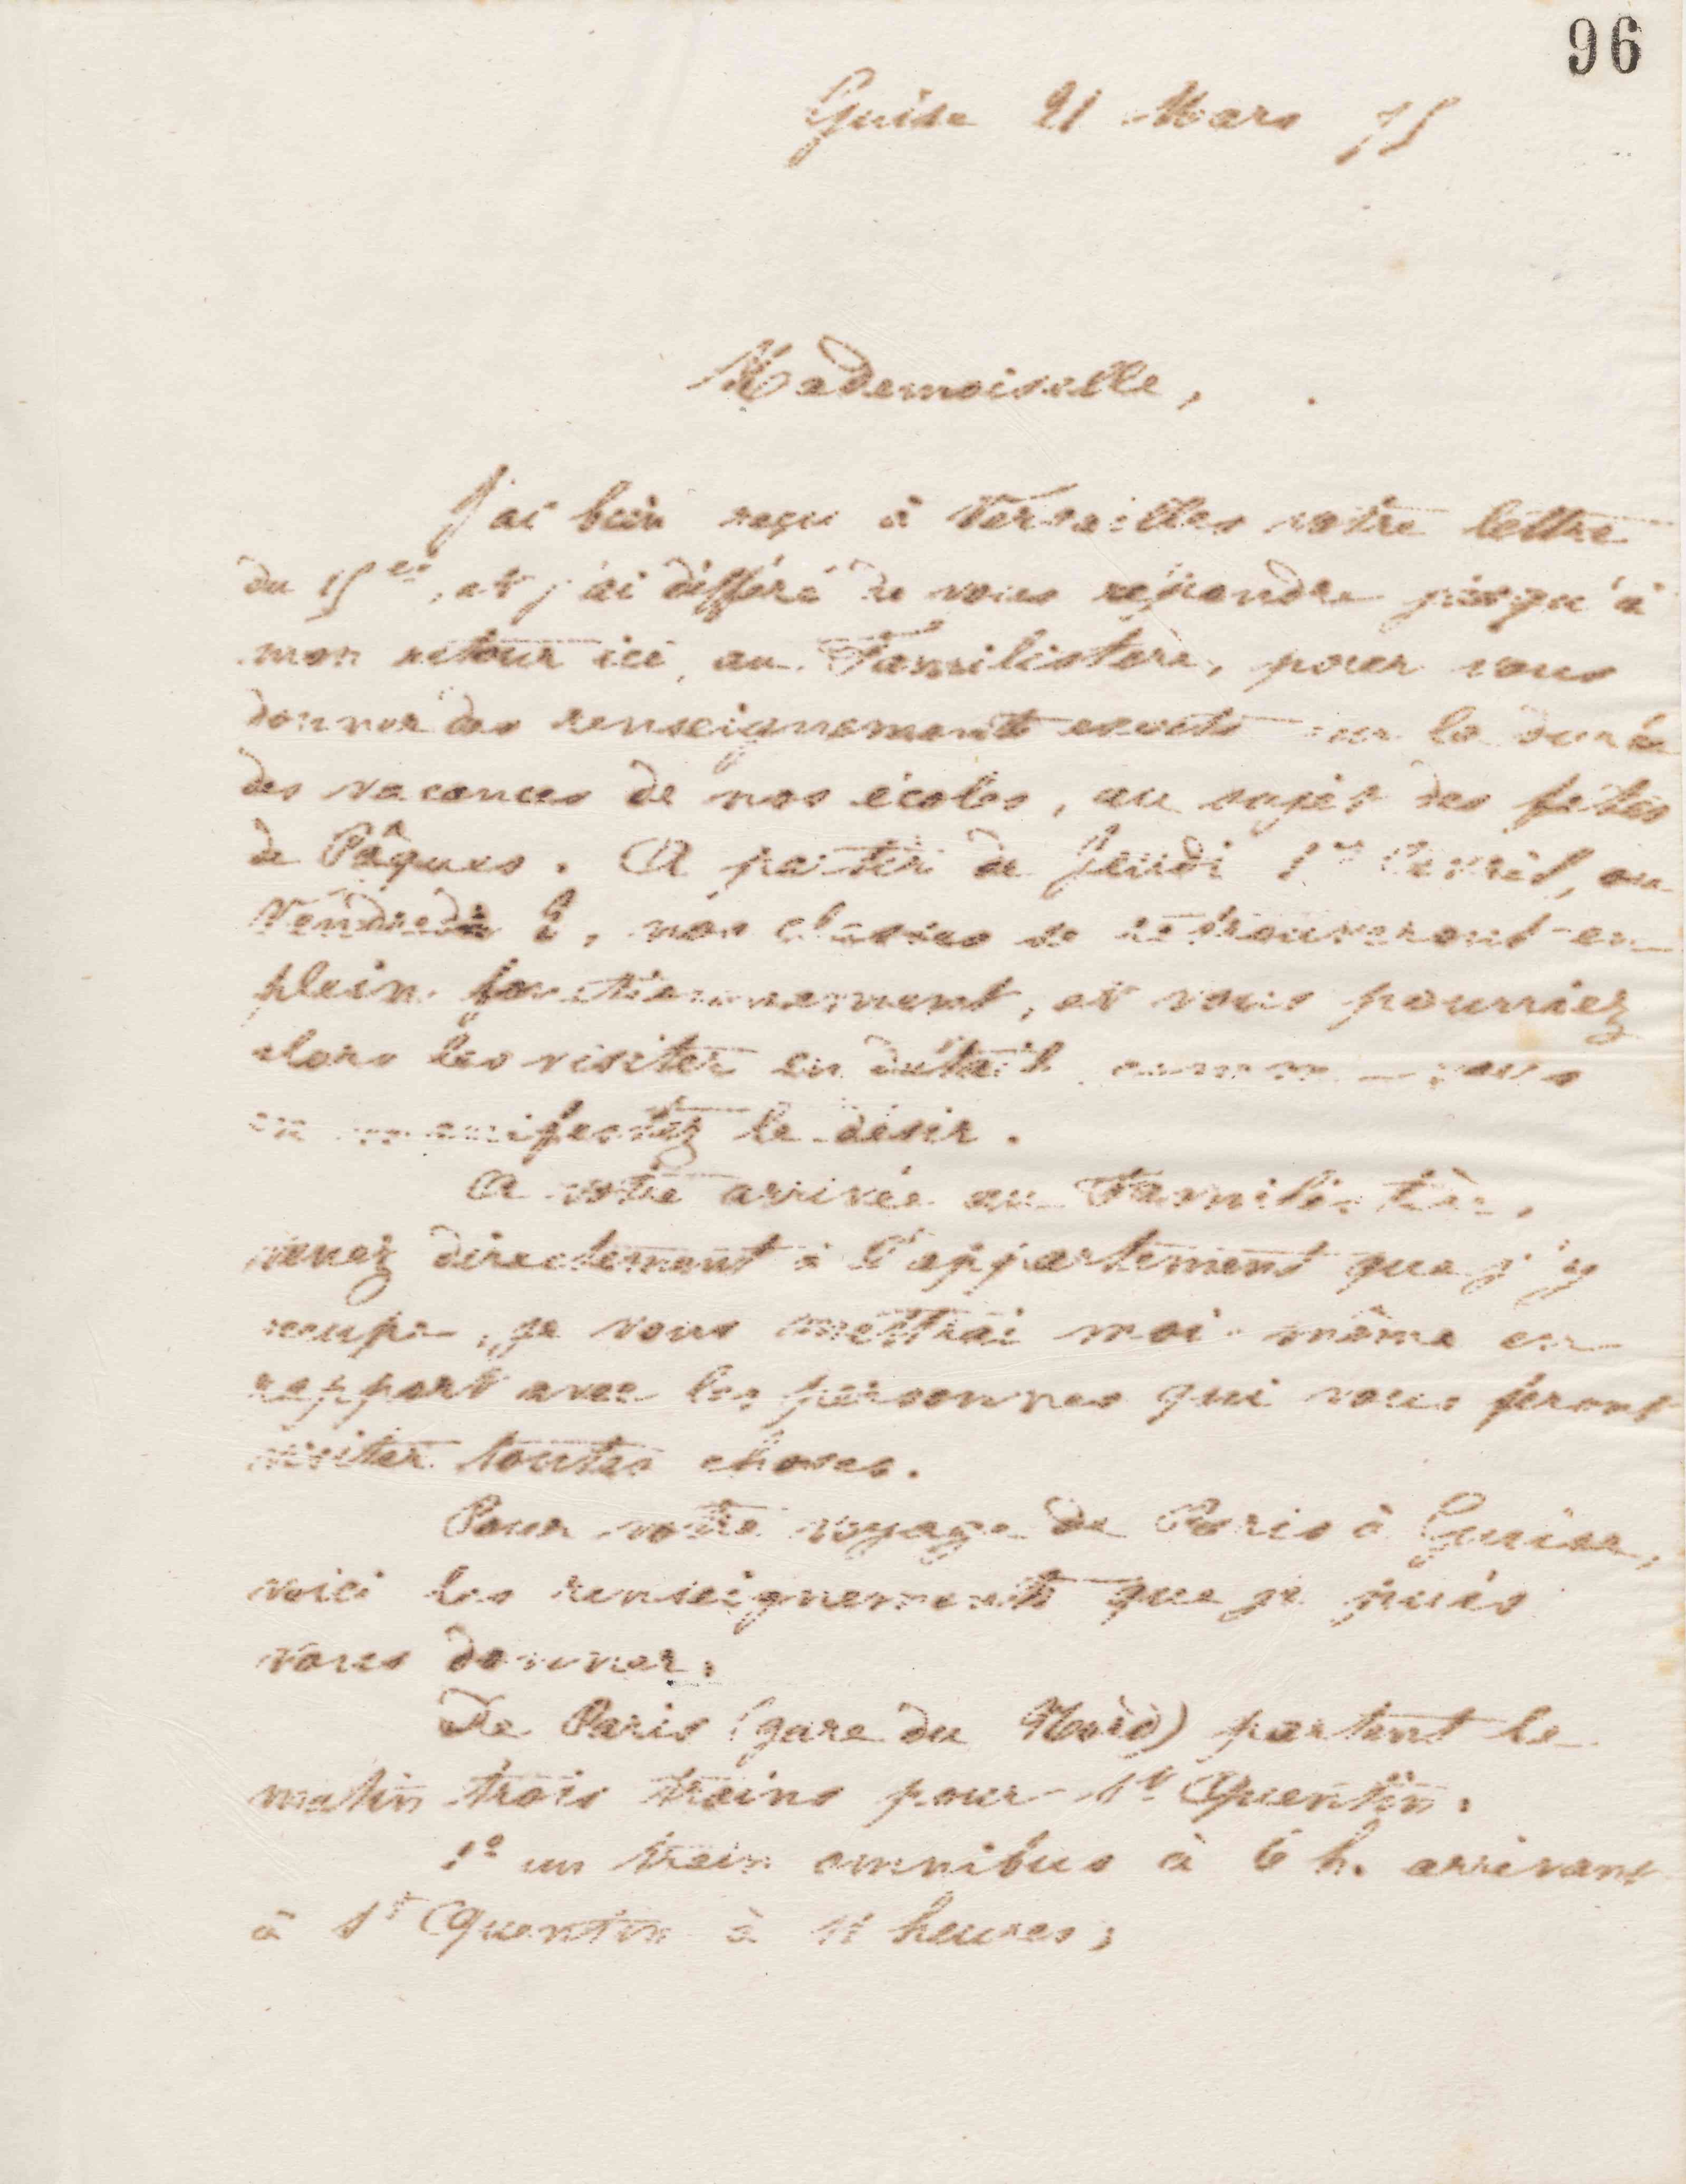 96
Guise 21 Mars 75
Mademoiselle,
J'ai bien reçu à Versailles votre lettre
du 15 et, et j'ai différé de vous répondre jusqu'à
mon retour ici, au Familistère, pour vous
donner des renseignements exacts sur la durée
des vacances de nos écoles, au sujet des fêtes
de Pâques. A partir de Jeudi 1er Avril, ou
Vendredi 2, nos classes se retrouveront en
plein fonctionnement, et vous pourriez
alors les visiter en détail comme vous
en manifestez le désir.
A votre arrivée au Familistère,
venez directement à l'appartement que j'y
occupe, je vous mettrai moi-même en
rapport avec les personnes qui vous feront
visiter toutes choses.
Pour votre voyage de Paris à Guise,
voici les renseignements que je puis
vous donner.
De Paris (gare du Nord) partent le
matin trois trains pour St Quentin.
1o un train omnibus à 6 h. arrivant
à St Quentin à 11 heures;